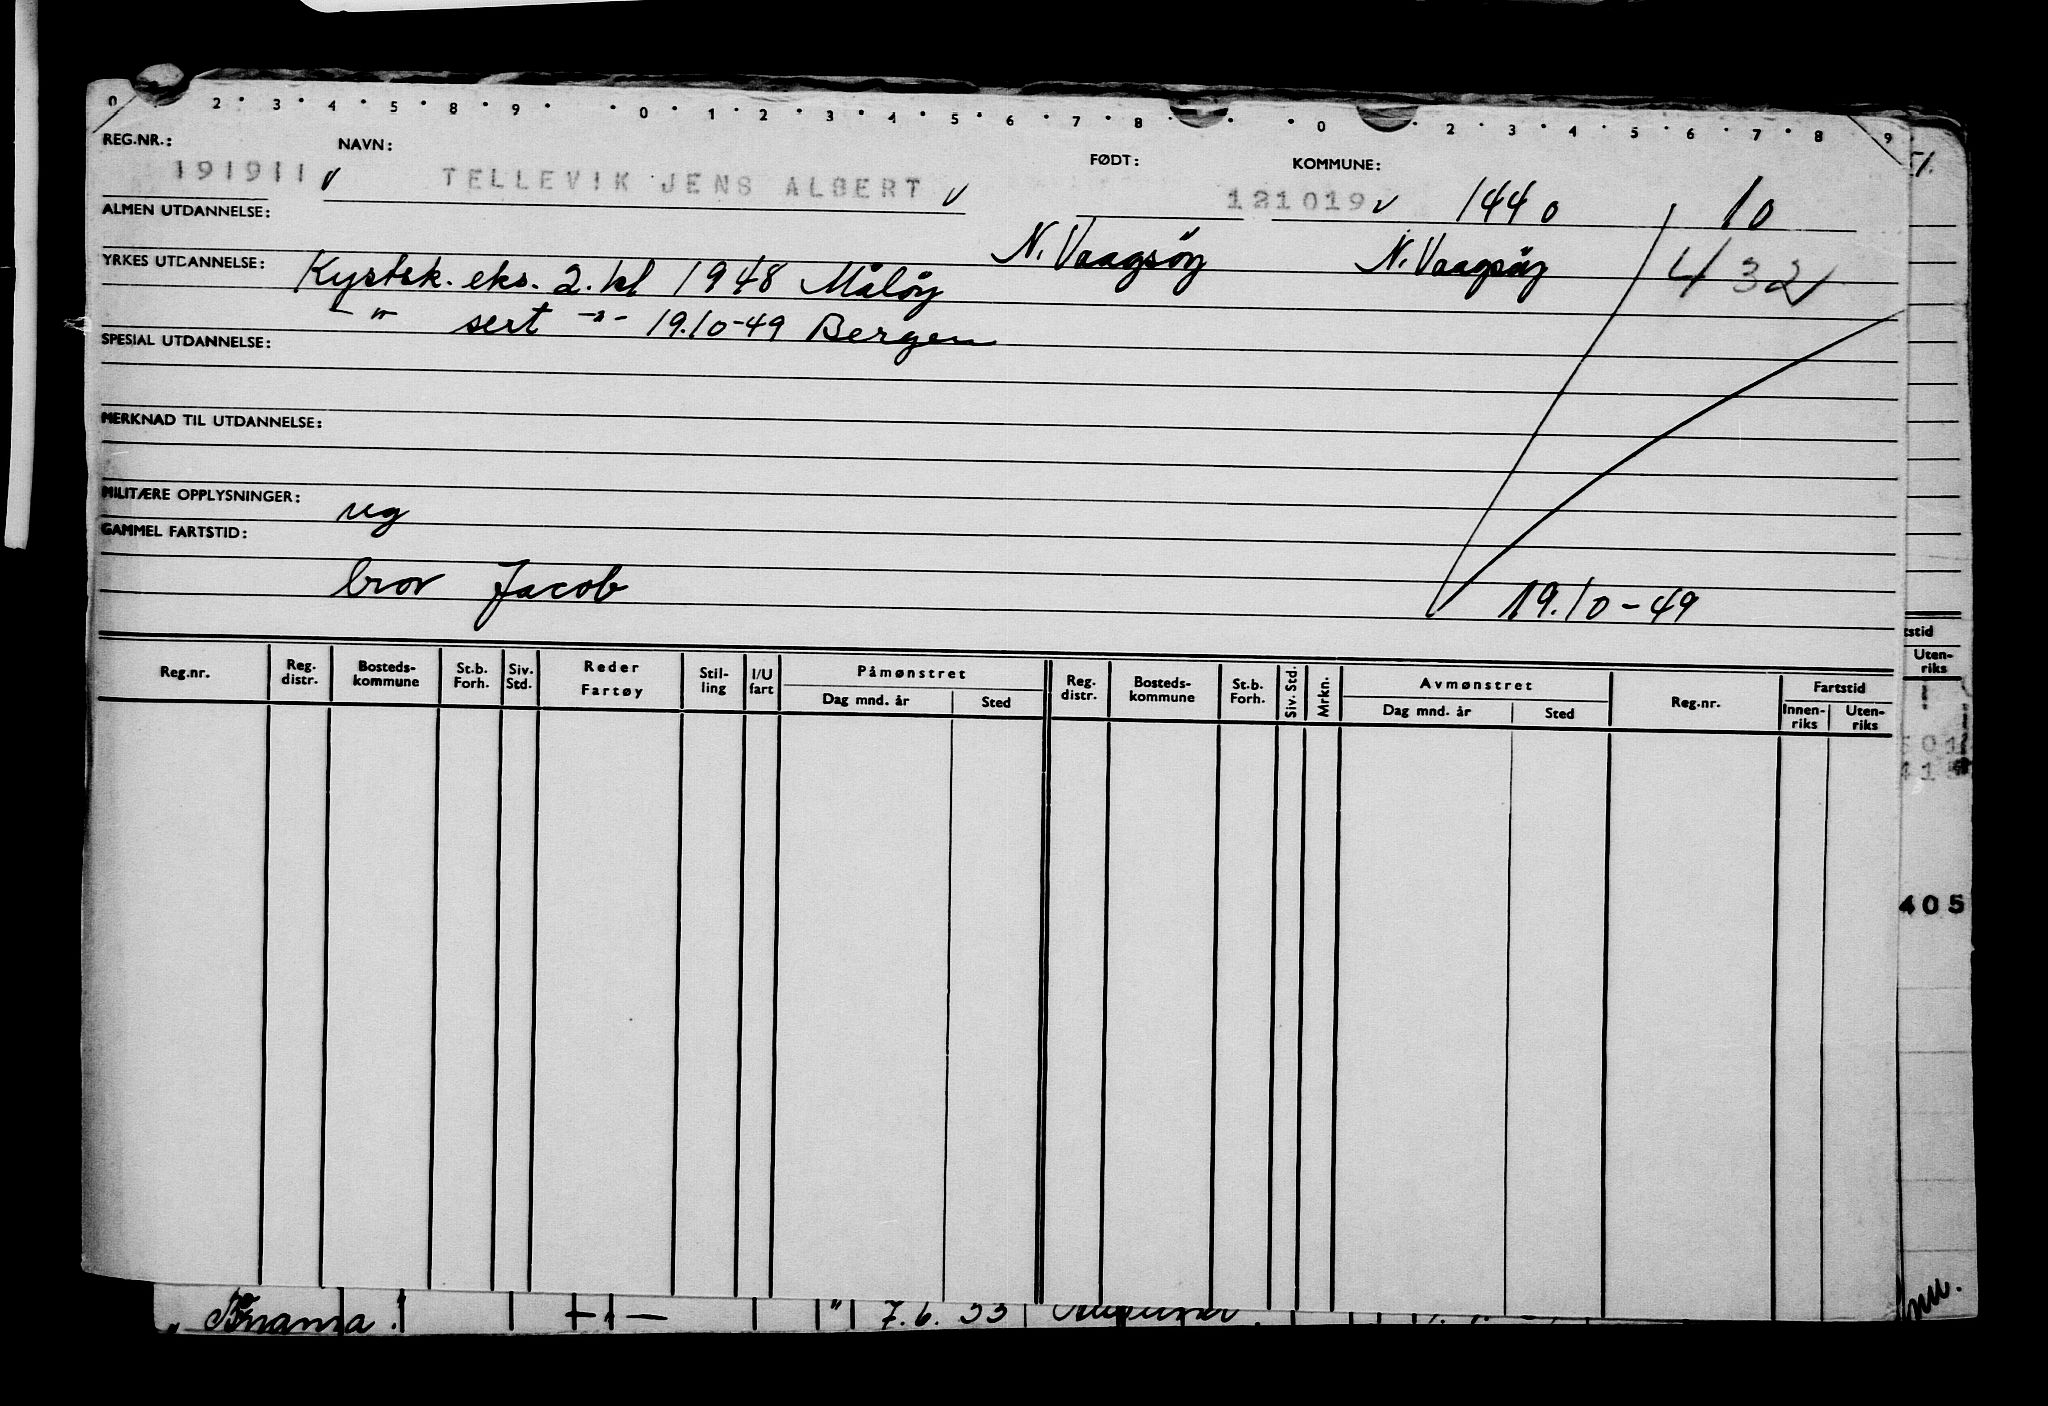 0 2 3 4 5 8 9 0 1 2 3 4 5 6 7 8 0 2 3 4 5 6 7 8 9
REG.NR.: NAVN: FØDT: KOMMUNE:
191911 v TELLEVIK JENS ALBERT v 121019 v 1440 10
ALMEN UTDANNELSE: N. Vaagsöy N. Vaagsöy 432
YRKES UTDANNELSE: Kystsk. eks. 2. kl 1948 Målöy
-"- sert -"- 19.10-49 Bergen
SPESIAL UTDANNELSE:
MERKNAD TIL UTDANNELSE:
MILITÆRE OPPLYSNINGER: ug
GAMMEL FARTSTID:
bror Jacob 19.10-49
Reg.nr. Reg. distr. Bosteds-kommune St.b. Forh. Siv. Std. Reder Fartøy Stil-ling I/U fart Påmønstret Dag mnd. år Sted Reg. distr. Bosteds-kommune St.b. Forh. Siv. Std. Mrkn. Avmønstret Dag mnd. år Sted Reg.nr. Fartstid Innen-riks Uten-riks
51.
tstid
Uten-riks
405
" 7.6.53